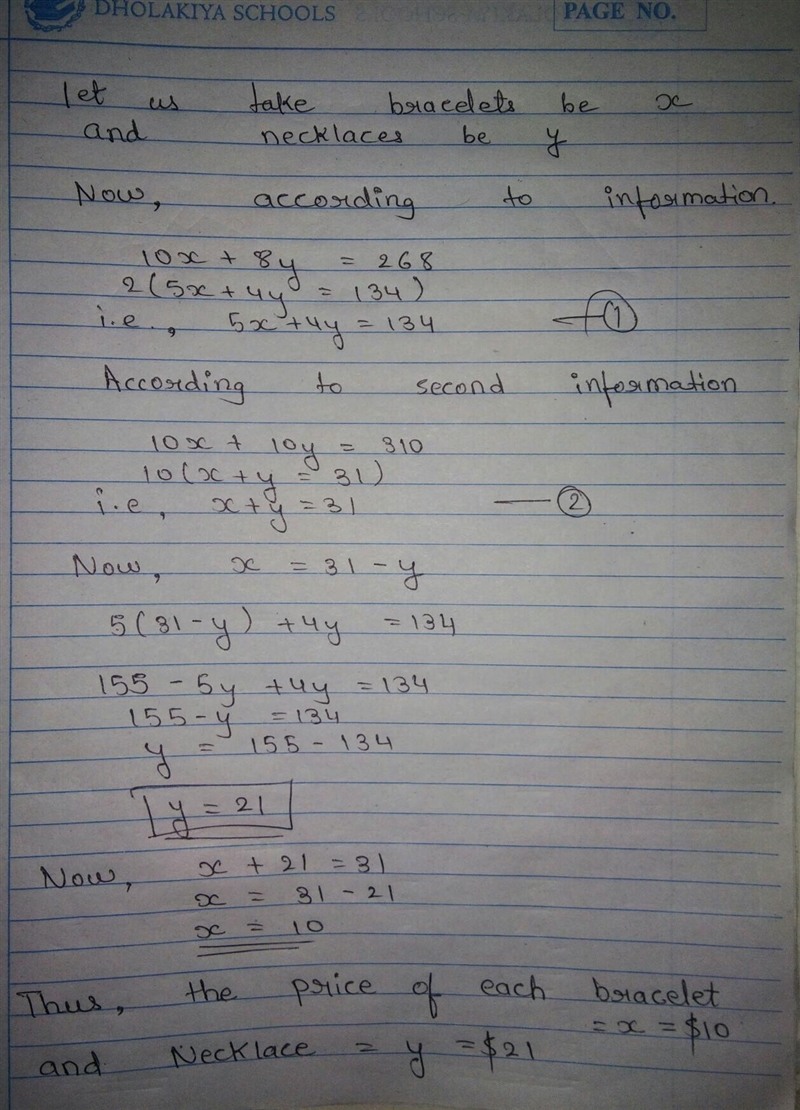 DHOLAKIYA SCHOOLS PAGE NO.
let us take bracelets be x
and necklaces be y
Now, according to information.
10x + 8y = 268
2(5x + 4y = 134)
i.e., 5x + 4y = 134 ①
According to second information
10x + 10y = 310
10(x + y = 31)
i.e, x + y = 31 — ②
Now, x = 31 - y
5(31 - y) + 4y = 134
155 - 5y + 4y = 134
155 - y = 134
y = 155 - 134
y = 21
Now, x + 21 = 31
x = 31 - 21
x = 10
Thus, the price of each bracelet
= x = $10
and Necklace = y = $21